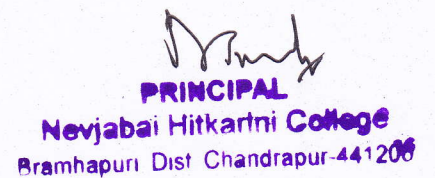 PRINCIPAL
Nevjabai Hitkarini College
Bramhapuri Dist Chandrapur-441206